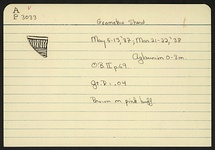 A
P 3033
Geometric Sherd
May 6-13, '37, Mar. 21-22, '38
Agbunar 0-3m
O.B. II p. 69
Brown on pink buff